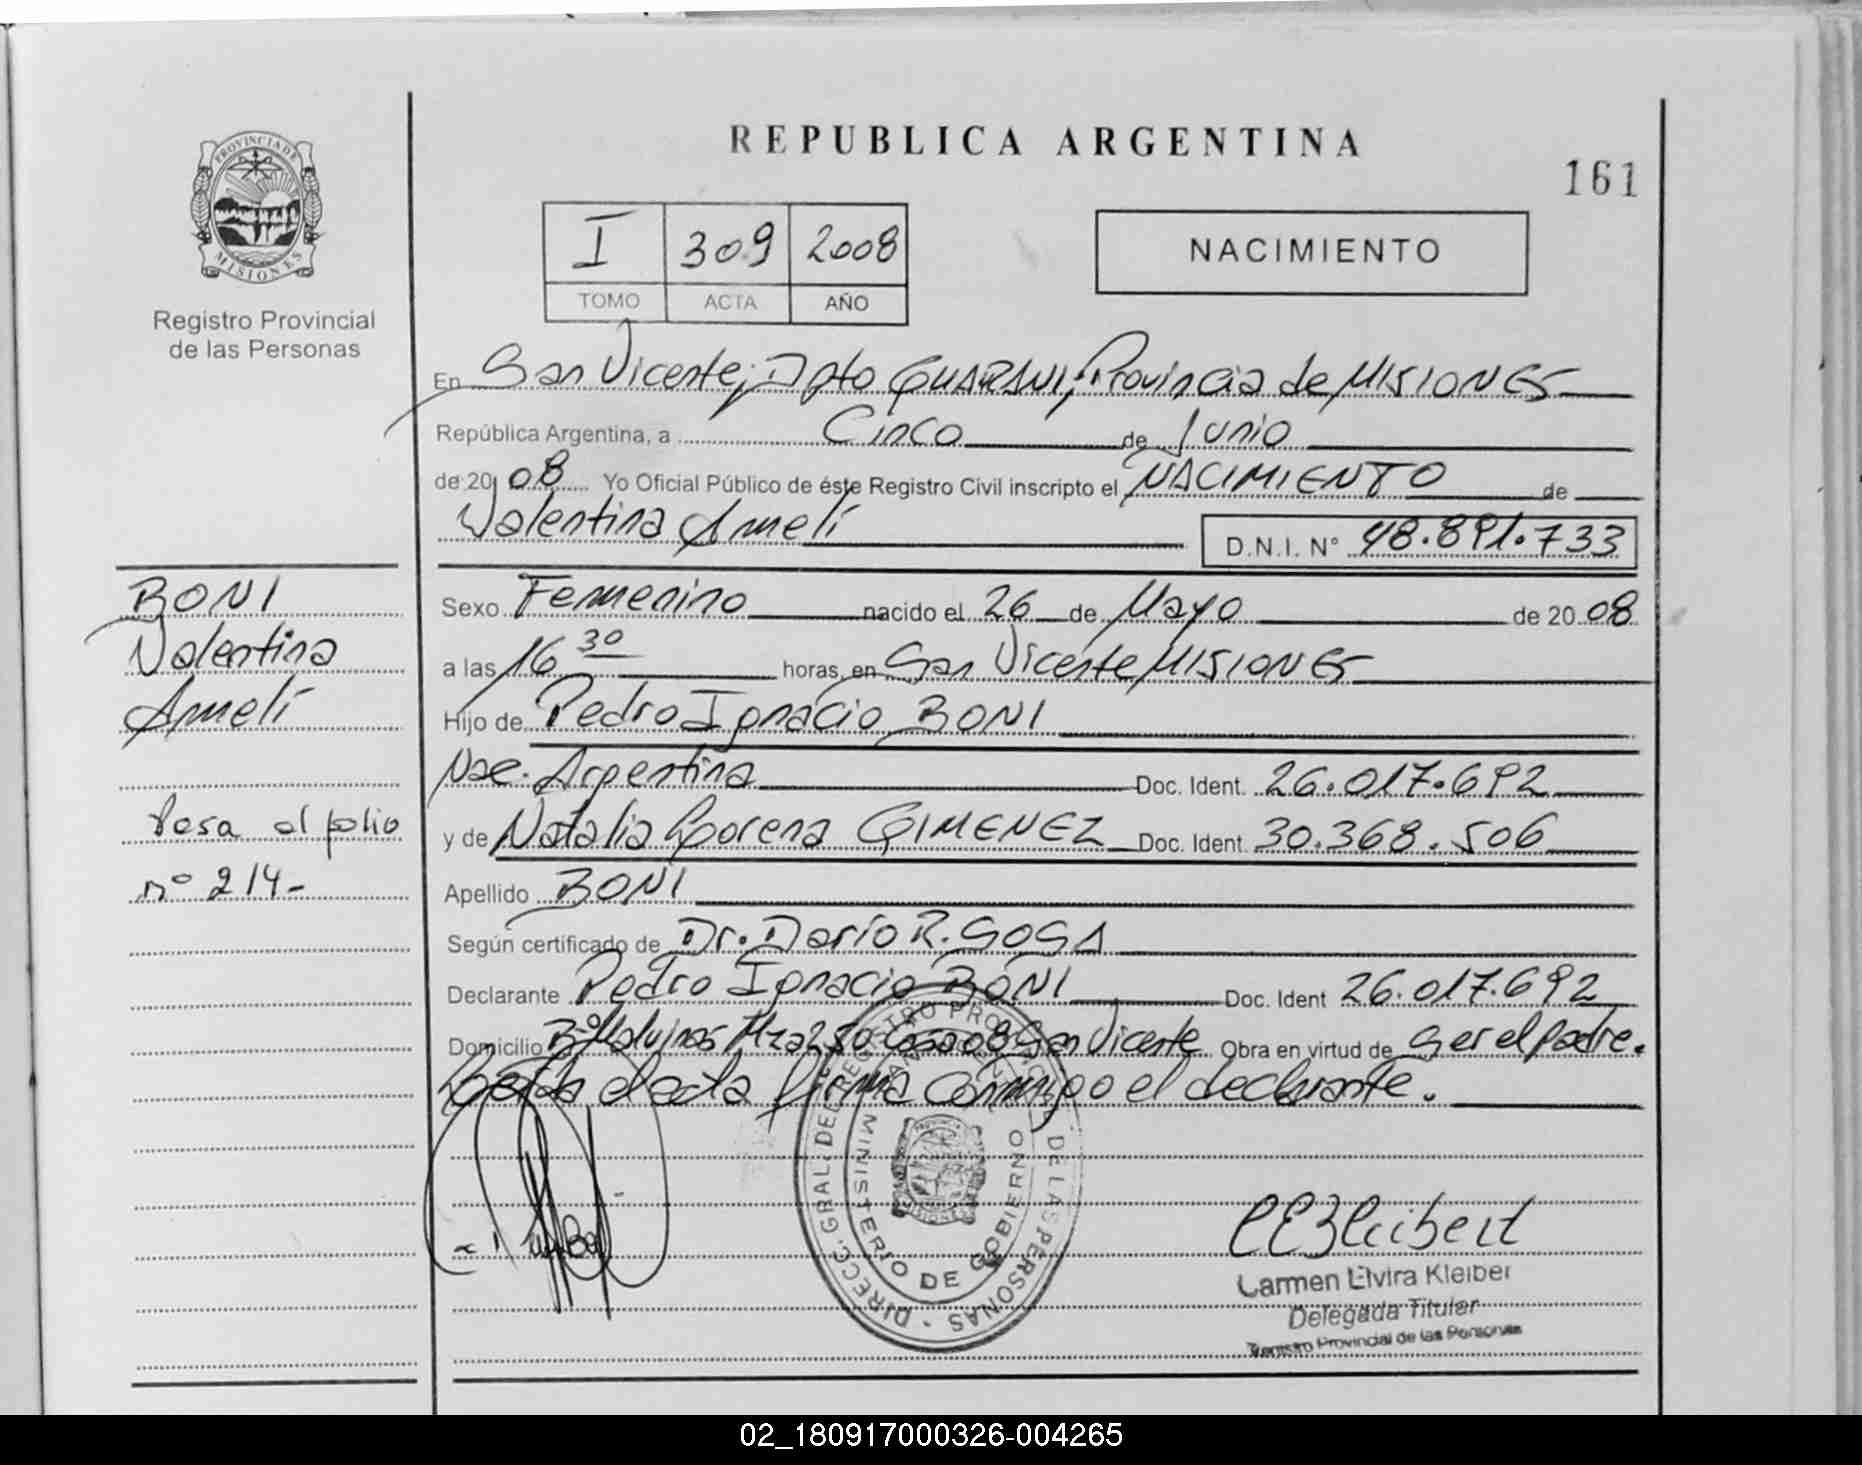 REPUBLICA ARGENTINA
161
PROVINCIA DE MISIONES
Registro Provincial
de las Personas
I 309 2008
TOMO ACTA AÑO
NACIMIENTO
En San Vicente, Dpto GUARANI, Provincia de MISIONES
República Argentina, a Cinco de Junio
de 2008 Yo Oficial Público de éste Registro Civil inscripto el NACIMIENTO de
Valentina Amelí D.N.I. N° 48.891.733
BONI
Valentina
Amelí
Pasa al folio
nº 214-
Sexo Femenino nacido el 26 de Mayo de 2008
a las 16 30 horas, en San Vicente MISIONES
Hijo de Pedro Ignacio BONI
Nac. Argentina Doc. Ident. 26.017.692
y de Natalia Lorena GIMENEZ Doc. Ident. 30.368.506
Apellido BONI
Según certificado de Dr. Darío R. SOSA
Declarante Pedro Ignacio BONI Doc. Ident 26.017.692
Domicilio Bº Malvinas Mza 250 08 San Vicente Obra en virtud de Ser el padre.
Leída el acta firma conmigo el declarante.
DIRECC. GRAL. DEL REGISTRO PROVINCIAL DE LAS PERSONAS
MINISTERIO DE GOBIERNO
Carmen Elvira Kleiber
Delegada Titular
Registro Provincial de las Personas
02_180917000326-004265